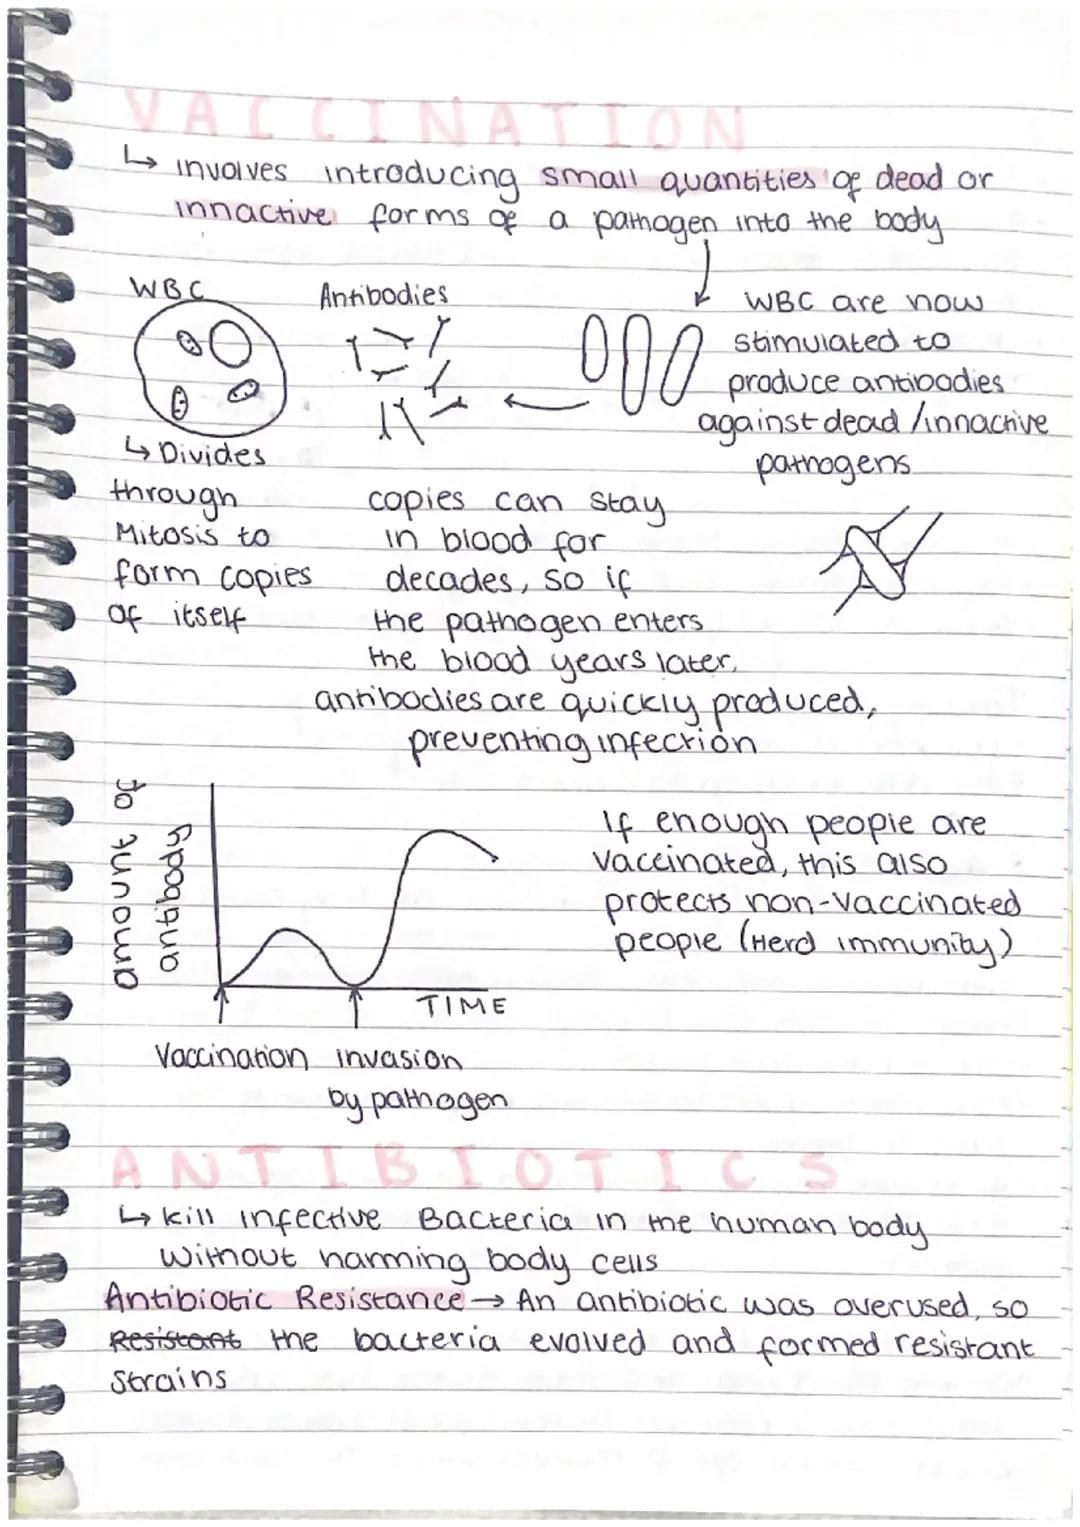 VACCINATION
↳ involves introducing small quantities of dead or
innactive forms of a pathogen into the body
WBC
Antibodies
WBC are now
stimulated to
produce antibodies
against dead /innactive
pathogens
↳ Divides
through
Mitosis to
form copies
of itself
copies can stay
in blood for
decades, so if
the pathogen enters
the blood years later,
antibodies are quickly produced,
preventing infection
amount of
antibody
TIME
Vaccination
invasion
by pathogen
If enough people are
vaccinated, this also
protects non-vaccinated
people (Herd immunity)
ANTIBIOTICS
↳ kill infective Bacteria in the human body
without harming body cells
Antibiotic Resistance → An antibiotic was overused, so
Resistant the bacteria evolved and formed resistant
strains